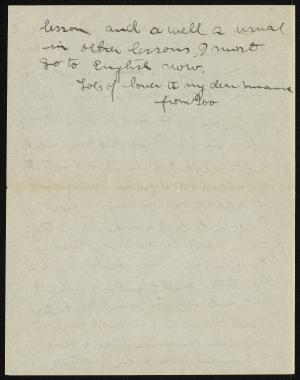 lesson and a well a usual
in other lessons, I must
go to English now.
Lots of love to my dear
from